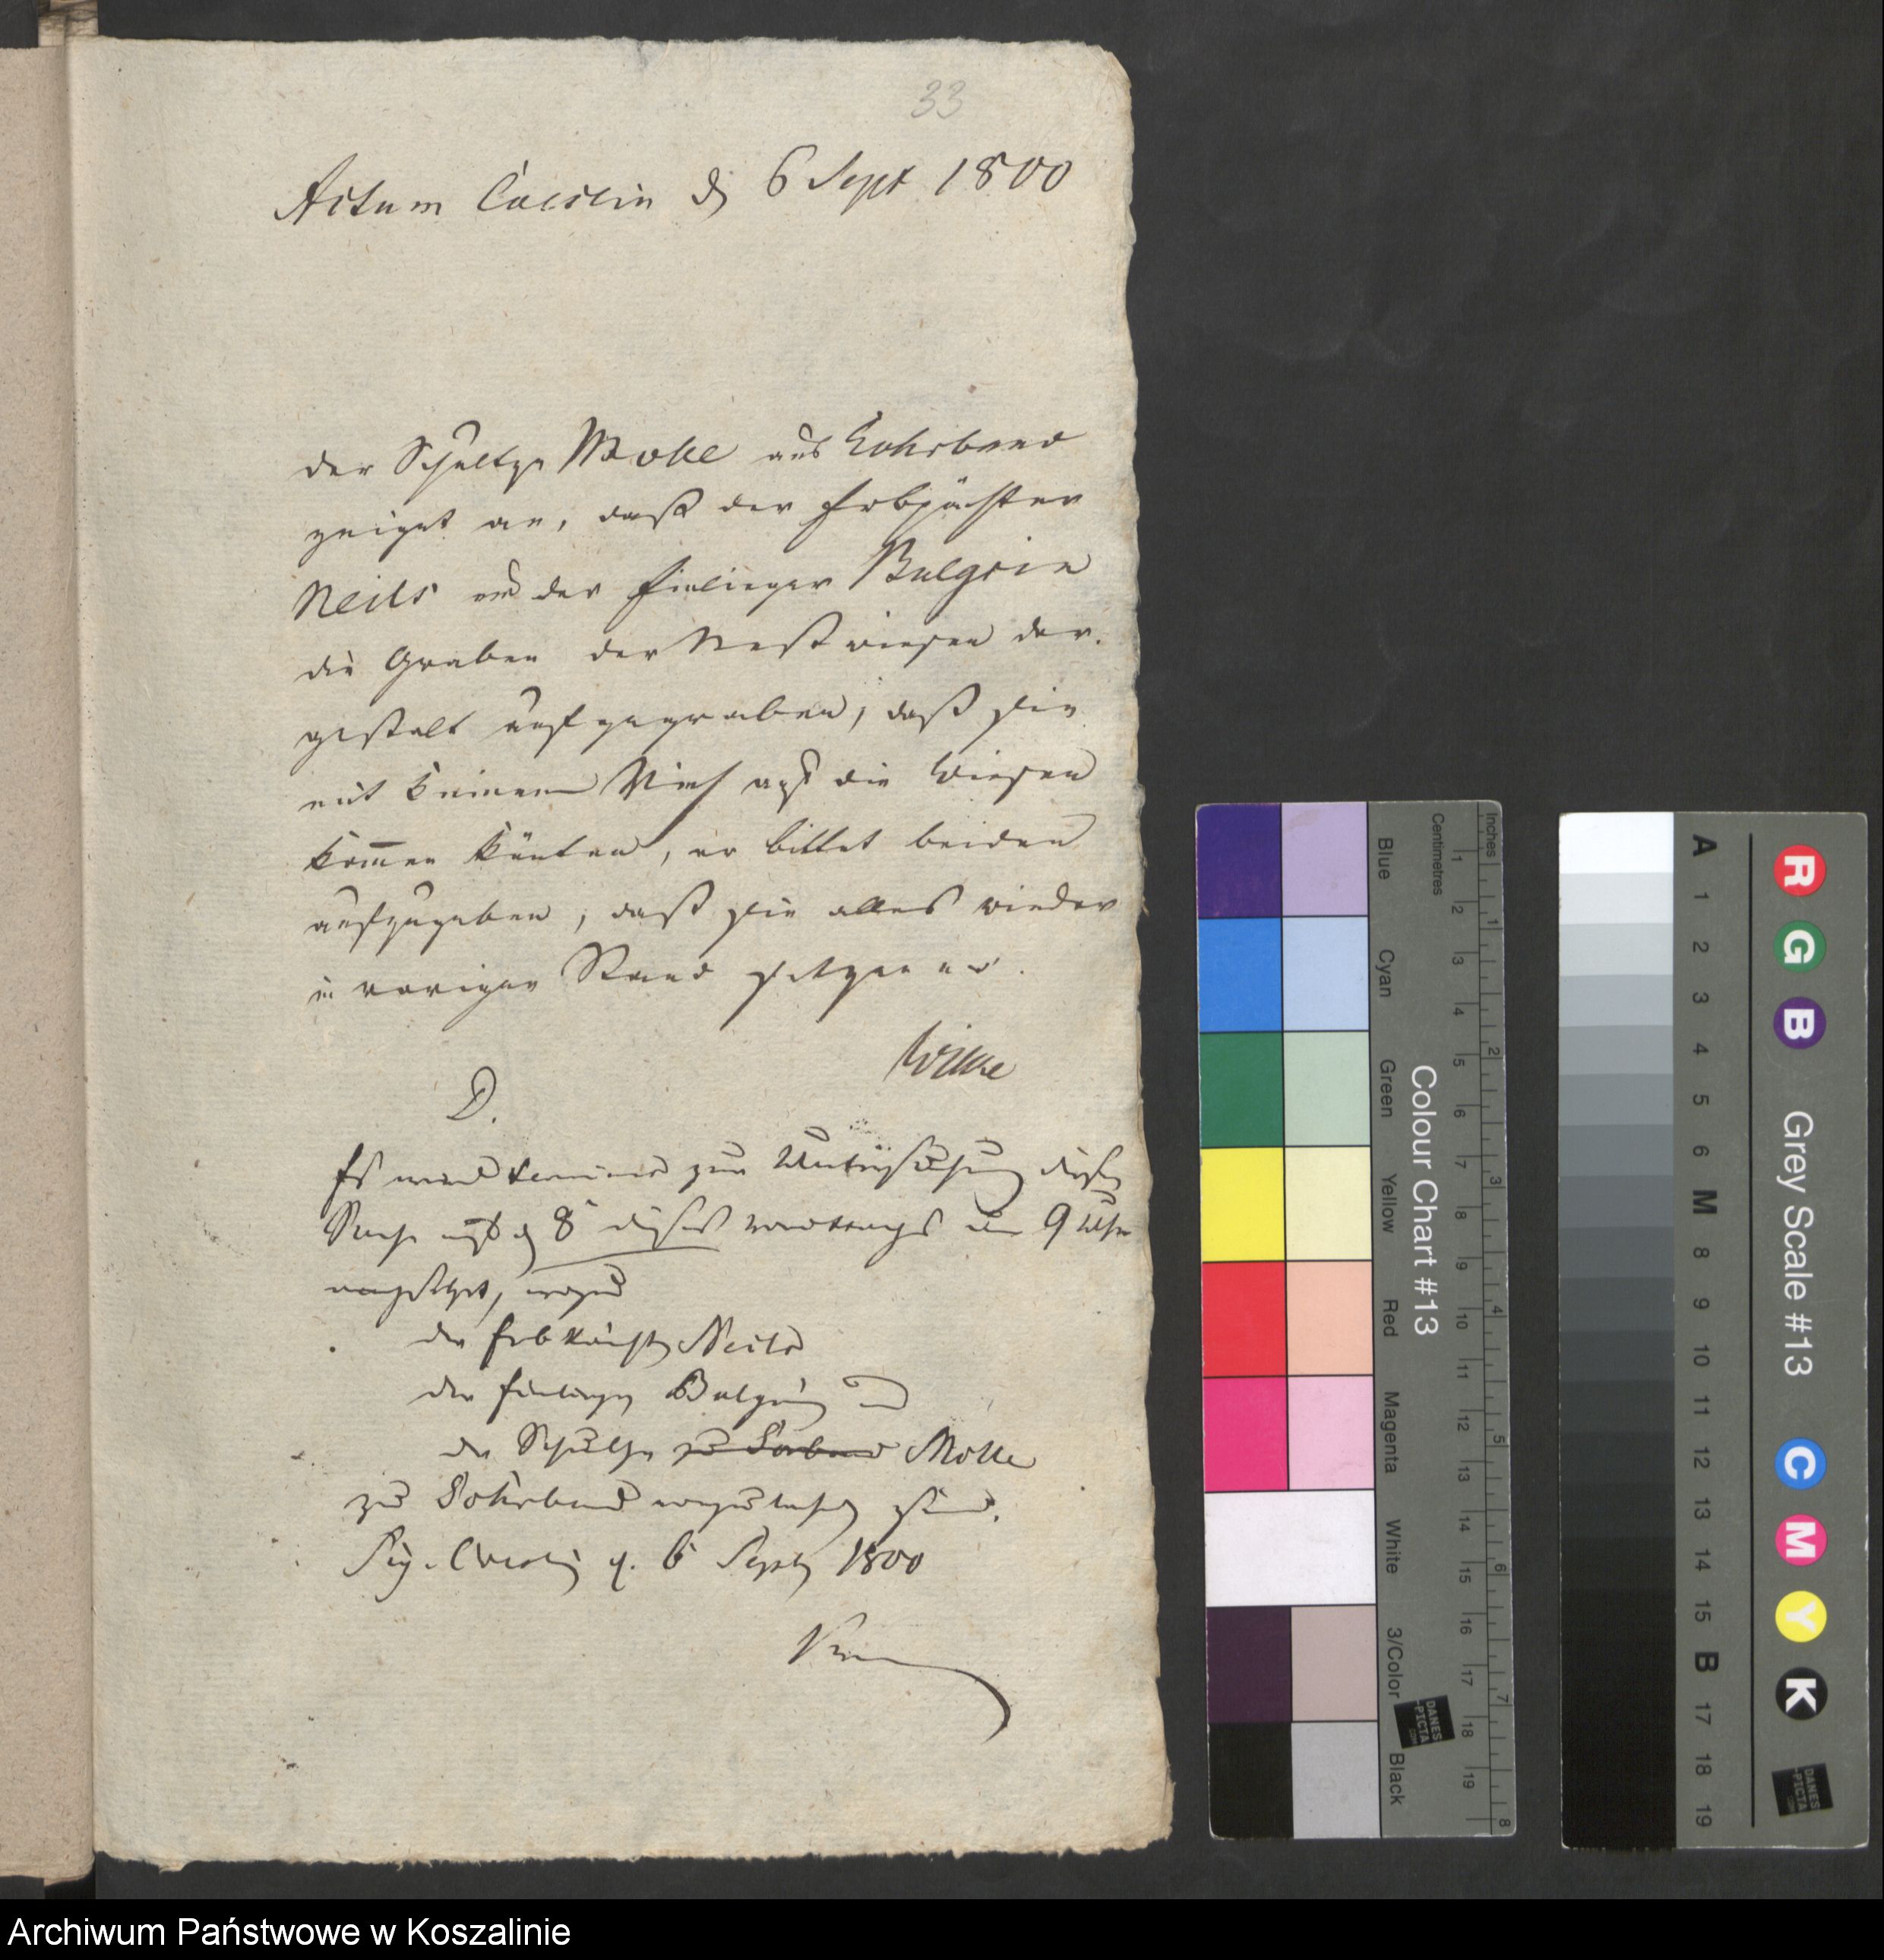 33
Actum Coeslin d 6 Sept 1800
der Schultze Molle aus Lohrband
zeiget an, daß der Erbpächter
Neils und der Einlieger Bulgrin
die Graben der Nest wiesen der
gestalt aufgegraben, daß sie
mit keinem Vieh auf die Wiesen
kom̅en könten, er bittet beiden
aufzugeben, daß sie alles wieder
in vorigen Stand setzen
Wilke
D.
Es wird terminus zur Untersuchung dieser
Sache auf d 8 dieses vormittags um 9 Uhr
angesetzt, wozu
der Erbpächter Neils
der Einlieger Bulgrin und
der Schultze zu Sorbaud Molle
zu Sohrband vorzuladen sind.
Sig. Coeslin d. 6 Sept 1800
Archiwum Państwowe w Koszalinie
Colour Chart #13
Blue
Cyan
Green
Yellow
Red
Magenta
White
3/Color
Black
Centimetres
Inches
1 2 3 4 5 6 7 8 9 10 11 12 13 14 15 16 17 18 19
1 2 3 4 5 6 7 8
DANES
-PICTA
.COM
Grey Scale #13
A 1 2 3 4 5 6 M 8 9 10 11 12 13 14 15 B 17 18 19
R G B
C M Y K
DANES
-PICTA
.COM